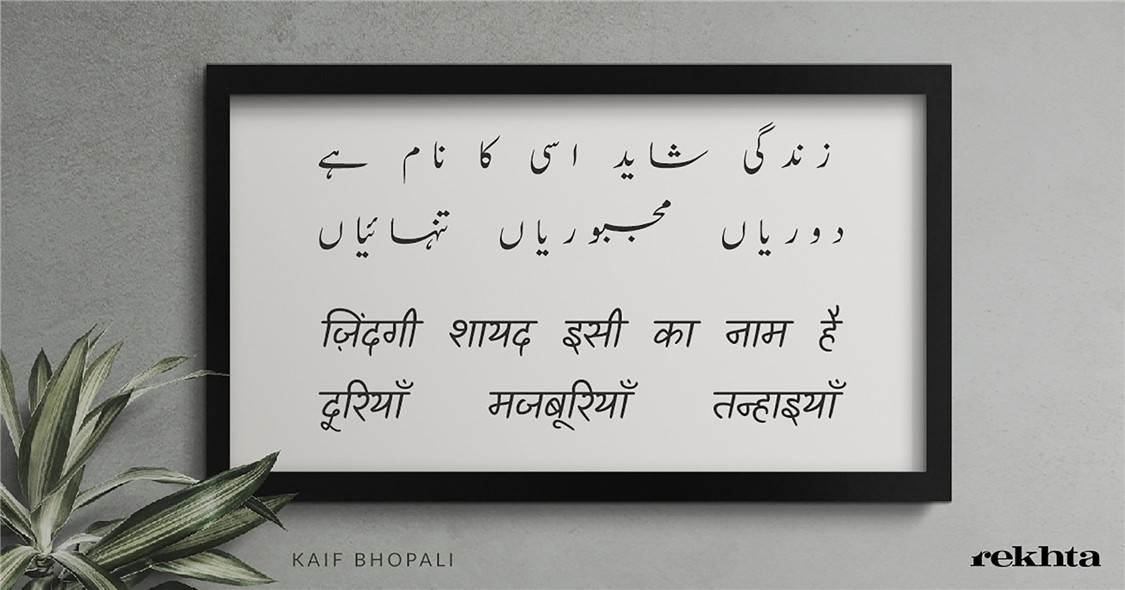 زندگی شاید اسی کا نام ہے
دوریاں مجبوریاں تنہائیاں
ज़िंदगी शायद इसी का नाम है
दूरियाँ मजबूरियाँ तन्हाइयाँ
KAIF BHOPALI
rekhta